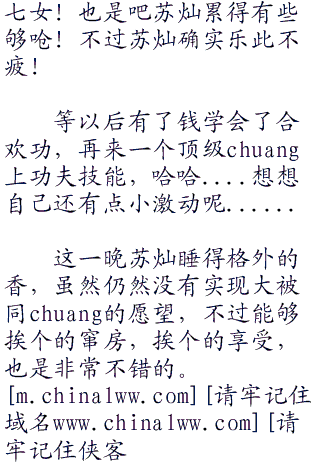 七女！也是吧苏灿累得有些
够呛！不过苏灿确实乐此不
疲！
等以后有了钱学会了合
欢功，再来一个顶级chuang
上功夫技能，哈哈....想想
自己还有点小激动呢......
这一晚苏灿睡得格外的
香，虽然仍然没有实现大被
同chuang的愿望，不过能够
挨个的窜房，挨个的享受，
也是非常不错的。
[m.china1ww.com][请牢记住
域名www.china1ww.com][请
牢记住侠客